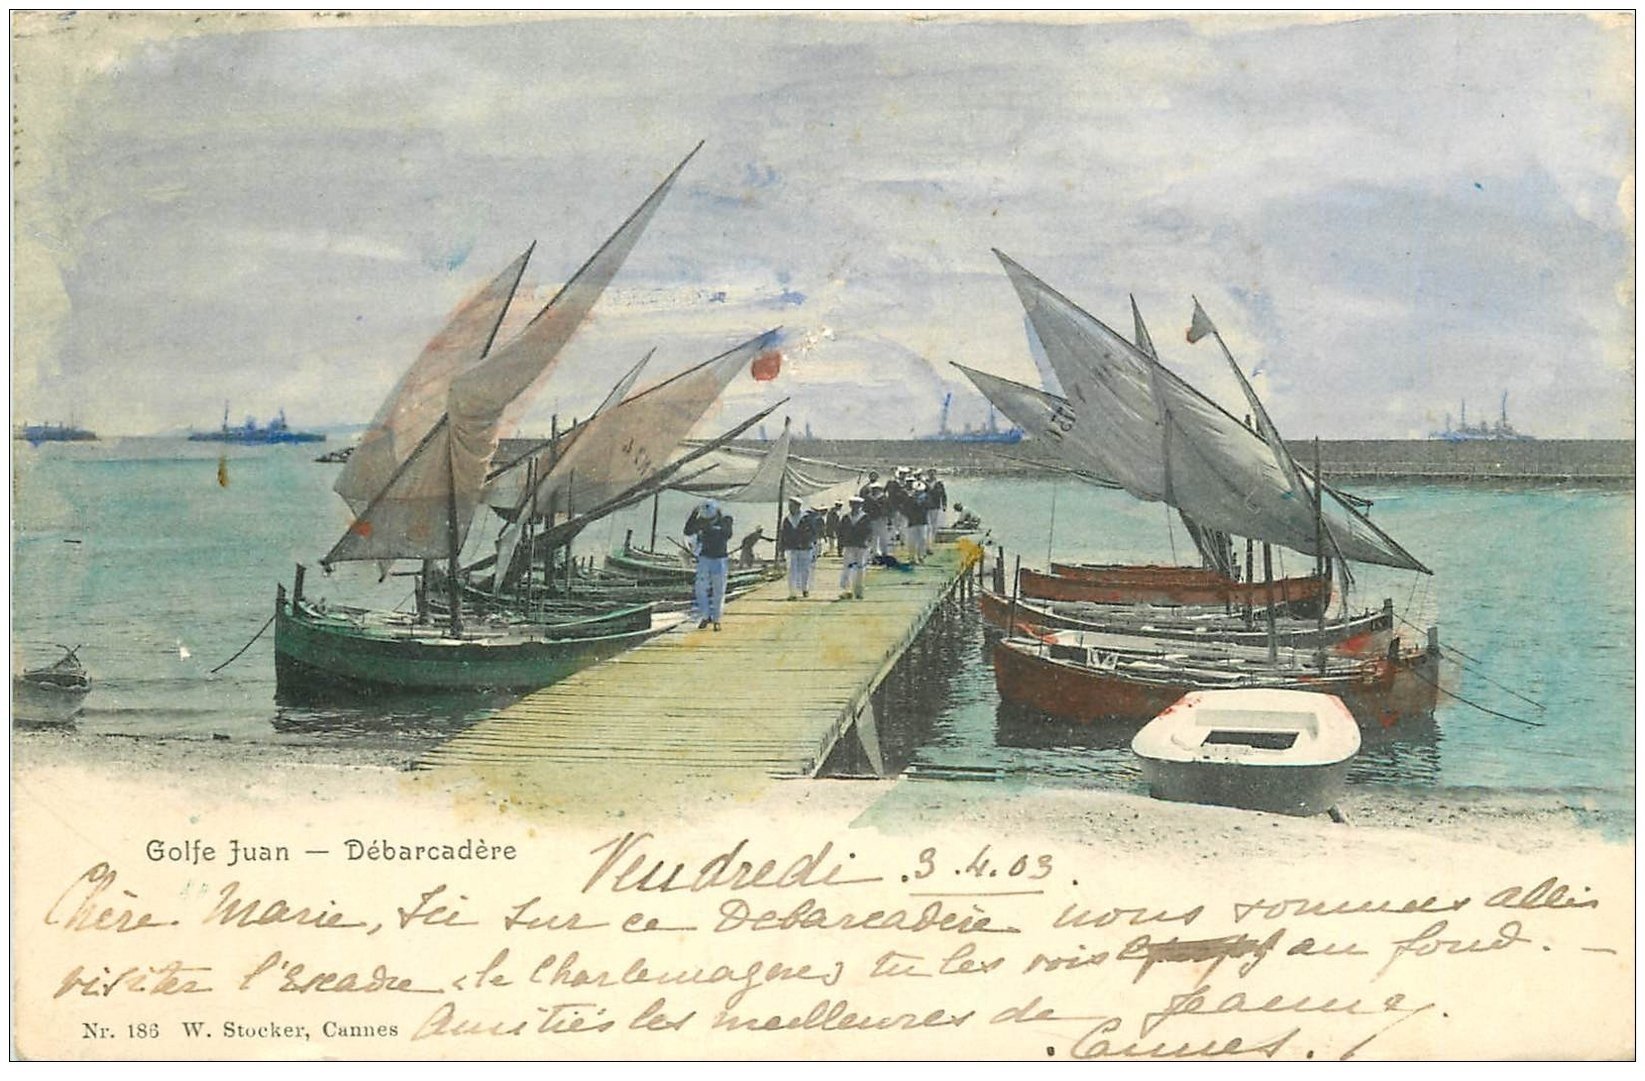 Golfe Juan — Débarcadère
Vendredi 3.4.03.
Chère Marie, Ici sur ce Debarcadère nous sommes allés
visiter l'Escadre (le Charlemagne) tu les vois au fond. —
Amitiés les meilleures de Jeanne.
Nr. 186 W. Stocker, Cannes
Cannes.